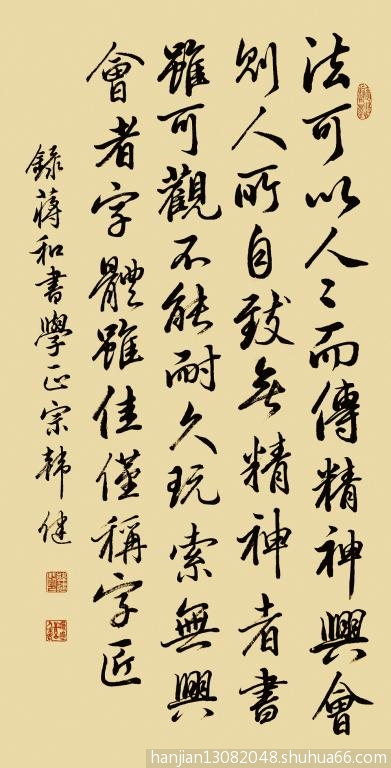 法可以人人而傳精神興會
則人所自致無精神者書
雖可觀不能耐久玩索無興
會者字體雖佳僅稱字匠
錄蔣和書學正宗韓健
hanjian13082048.shuhua66.com